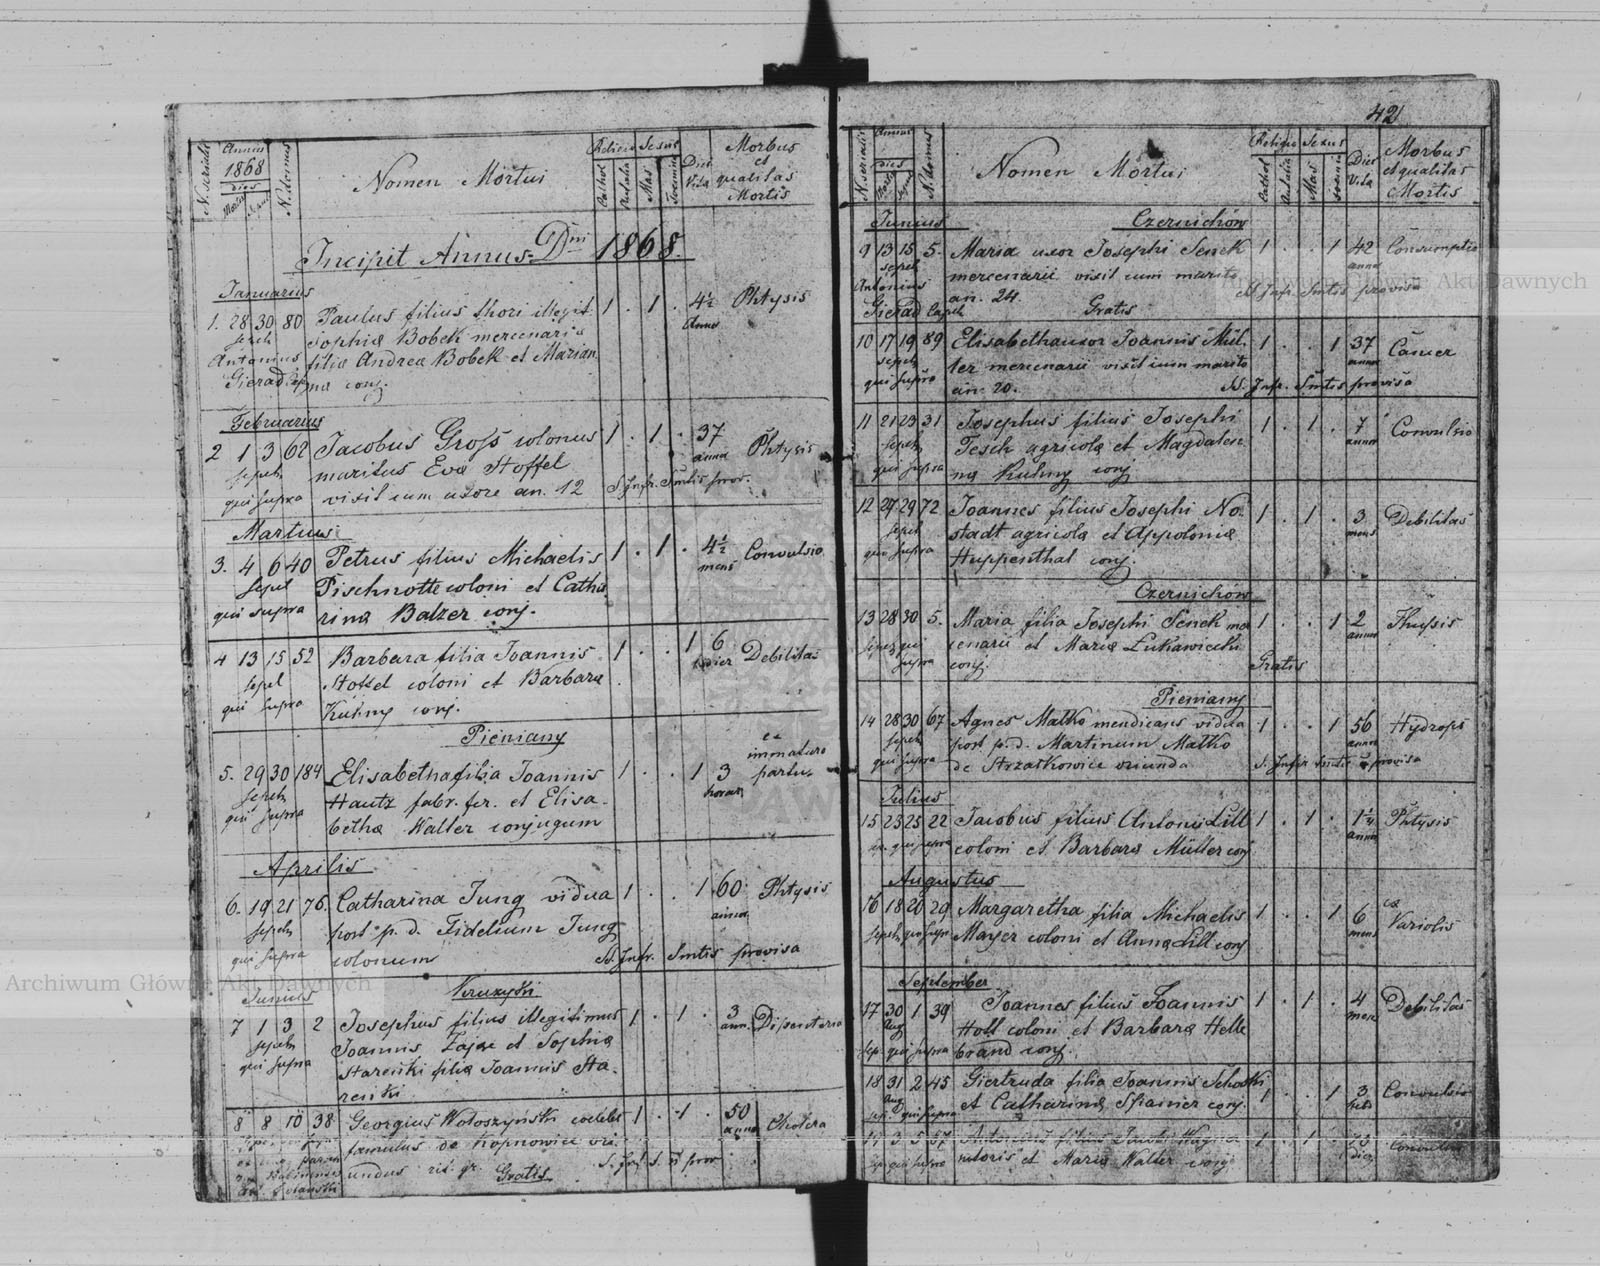 N. serialis
Annus
1868
dies
Mortis
N. domus
Nomen Mortui
Religio
Cathol
Sexus
Mas
Foemin
Dies
Vita
Morbus
et
qualitas
Mortis
Incipit Annus Dni 1868.
Januarius
1. 28 30 80 Paulus filius thori illegit. 1 . 1 . 4½ Phtysis
sepeh Sophia Bobek mercenaria Anno
Antonius filia Andrea Bobek et Marian
Gierad Cap. na conj.
Februarius
2 1 3 62 Jacobus Groß colonus 1 . 1 . 37 Phtysis
sepeh maritus Eva Stoffel anno
qui supra vixit cum uxore an. 12 S. Infr. Smtis prov.
Martius
3. 4 6 40 Petrus filius Michaelis 1 . 1 . 4½ Convulsio
sepel Pischnotte coloni et Catha mens
qui supra rina Balzer conj.
4 13 15 52 Barbara filia Joannis 1 . . 1 6 Debilitas
sepel Stoffel coloni et Barbara dier
qui supra Kuhny conj.
Pieniany
5. 29 30 184 Elisabetha filia Joannis 1 . . 1 3 ex immaturo partu
sepeh Hautz fabr. fer. et Elisa- horas
qui supra betha Walter conjugum
Aprilis
6. 19 21 76. Catharina Jung vidua 1 . . 1 60 Phtysis
sepeh post p. d. Fidelium Jung annor
qui supra colonum Ss. Infr. Smtis provisa
Junius
7 1 3 2 Josephus filius illegitimus 1 . 1 . 3 Disenteria
sepeh Joannis Zając et Sophia ann.
qui supra Stareńki filia Joannis Sta-
reńki
8 8 10 38 Georgius Wołoszyński coelebs 1 . 1 . 50 Cholera
famulus de Kopnowice ori- anno
undus rit. gr. Gratis S. Inf. S. n prov
42
N. serialis
Annus
dies
N. domus
Nomen Mortui
Religio
Cathol
Sexus
Mas
Foemin
Dies
Vita
Morbus
et qualitas
Mortis
Junius Czernichów
9 13 15 5. Maria uxor Josephi Senek 1 . . 1 42 Consumptio
sepeh mercenarii vixit cum marito anno
Antonius an. 24. SS. Infr. Smtis provisa
Gierad Caph Gratis
10 17 19 89 Elisabetha uxor Joannis Mül- 1 . . 1 37 Cancer
sepeh ter mercenarii vixit cum marito anno
qui supra an. 20. SS. Infr. Smtis provisa
11 21 23 31 Josephus filius Josephi 1 . 1 . 7 Convulsio
sepeh Tesch agricola et Magdalen annor
qui supra na Kuhny conj.
12 27 29 72 Joannes filius Josephi No- 1 . 1 . 3 Debilitas
sepeh stadt agricola et Appolonia mens
qui supra Huppenthal conj.
Czernichów
13 28 30 5. Maria filia Josephi Senek mer 1 . . 1 2 Thysis
sepeh qui cenarii et Maria Łukawiecki annor
supra conj. Gratis
Pieniany
14 28 30 67 Agnes Matko mendicans vidua 1 . . 1 56 Hydrops
sepeh post p. d. Martinum Matko anno
qui supra de Strzałkowice oriunda S. Infir Smtis provisa
Julius
15 23 25 22 Jacobus filius Antonii Lill 1 . 1 . 1¼ Phtysis
qui supra coloni et Barbara Müller conj anno
Augustus
16 18 20 29 Margaretha filia Michaelis 1 . . 1 6 ex Variolis
sepeh qui supr Mayer coloni et Anna Lill conj mens
September
17 30 1 39 Joannes filius Joannis 1 . 1 . 4 Debilitas
Aug Holl coloni et Barbara Helle mens
sep. qui supra brand conj.
18 31 2 45 Giertruda filia Joannis Schoski 1 . . 1 3 Convulsio
Aug et Catharina Spanier conj.
qui supra
3 5 57 filius 1 . 1 . Convulsio
qui supra et Maria Walter conj dier
Archiwum Główne Akt Dawnych
Archiwum Główne Akt Dawnych